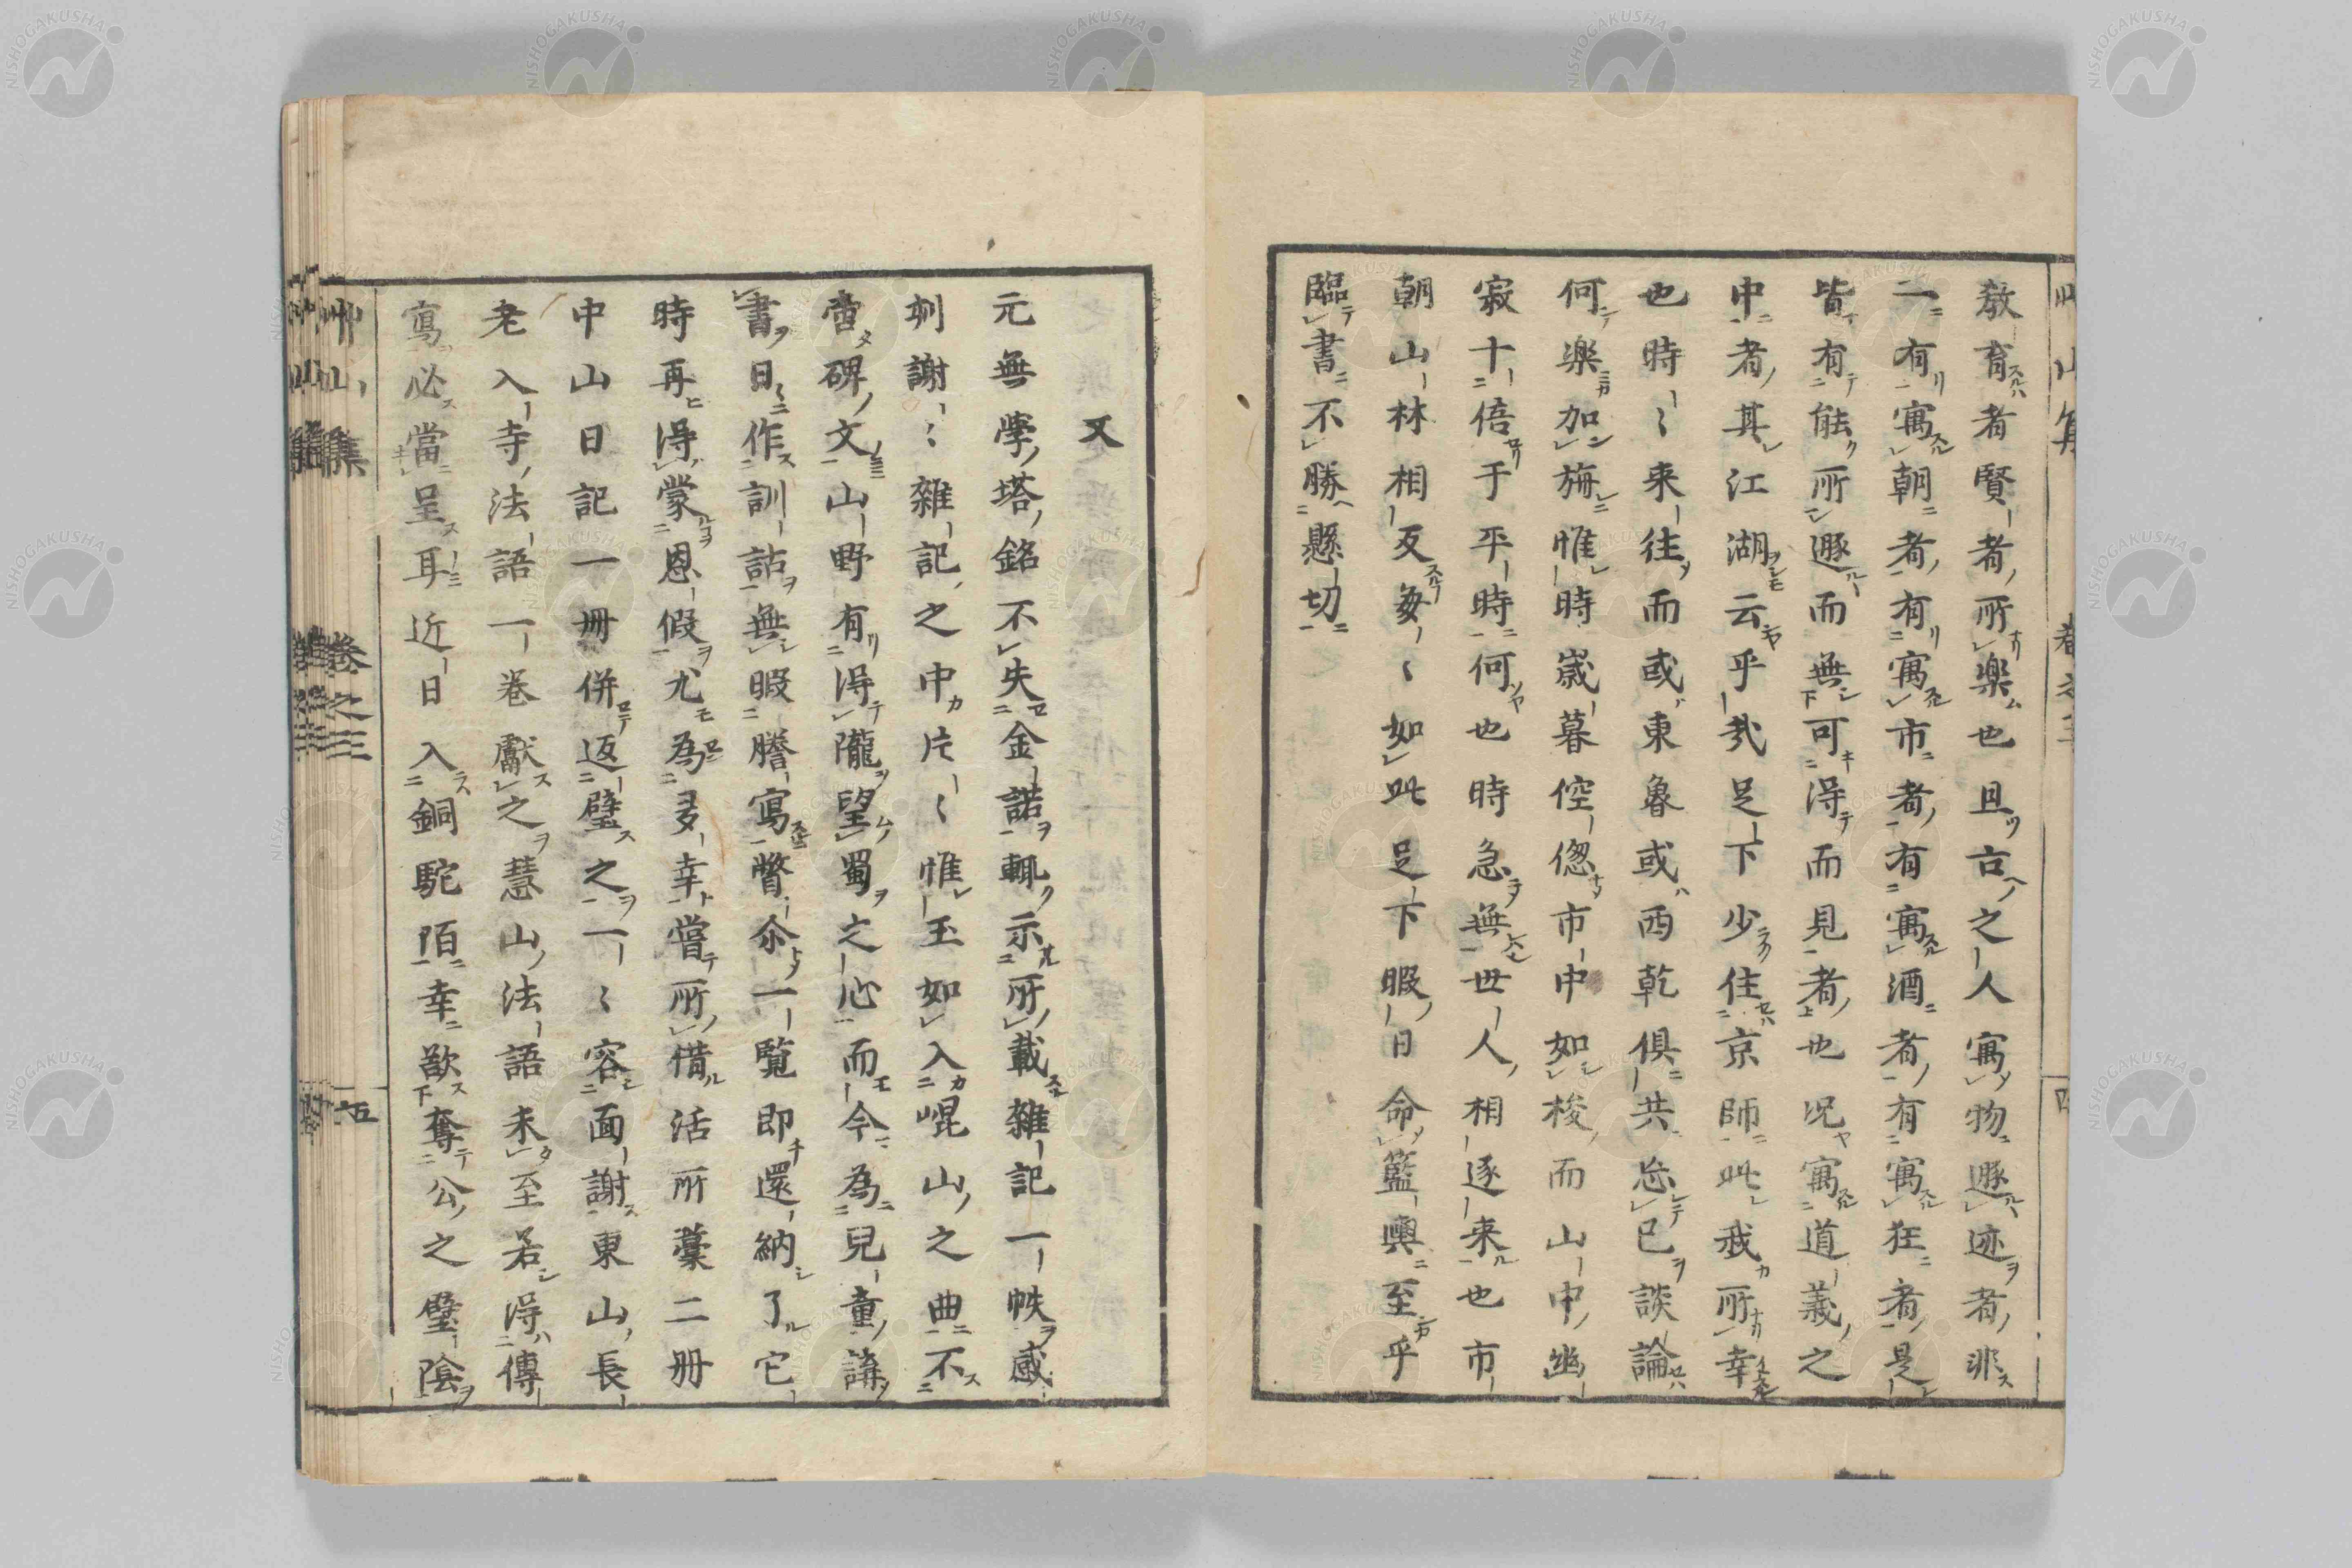 教育者賢者所樂也且古之人寓物遯迹者非
一有寓朝者有寓市者有寓酒者有寓狂者是
皆有能所遯而無可得而見者也况寓道義之
中者其江湖云乎哉足下少住京師此我所幸
也時〻来往而或東魯或西乾俱共忘已談論
何樂加旃惟時歳暮倥偬市中如梭而山中幽
寂十倍于平時何也時急無世人相逐来也市
朝山林相反每〻如此足下暇日命籃輿至乎
臨書不勝懸切
又
元無學塔銘不失金諾輒示所載雜記一帙感
刺謝〻雜記之中片〻惟玉如入崐山之曲不
啻碑文山野有得隴望蜀之心而今為兒童講
書日〻作訓詁無暇謄寫瞥尒一覧即還納了它
時再得蒙恩假尤為多幸嘗所借活所藁二冊
中山日記一冊併返璧之一〻容面謝東山長
老入寺法語一巻獻之慧山法語未至若得傳
寫必當呈耳近日入銅駝陌幸欲奪公之璧陰
艸山集 卷之三 五